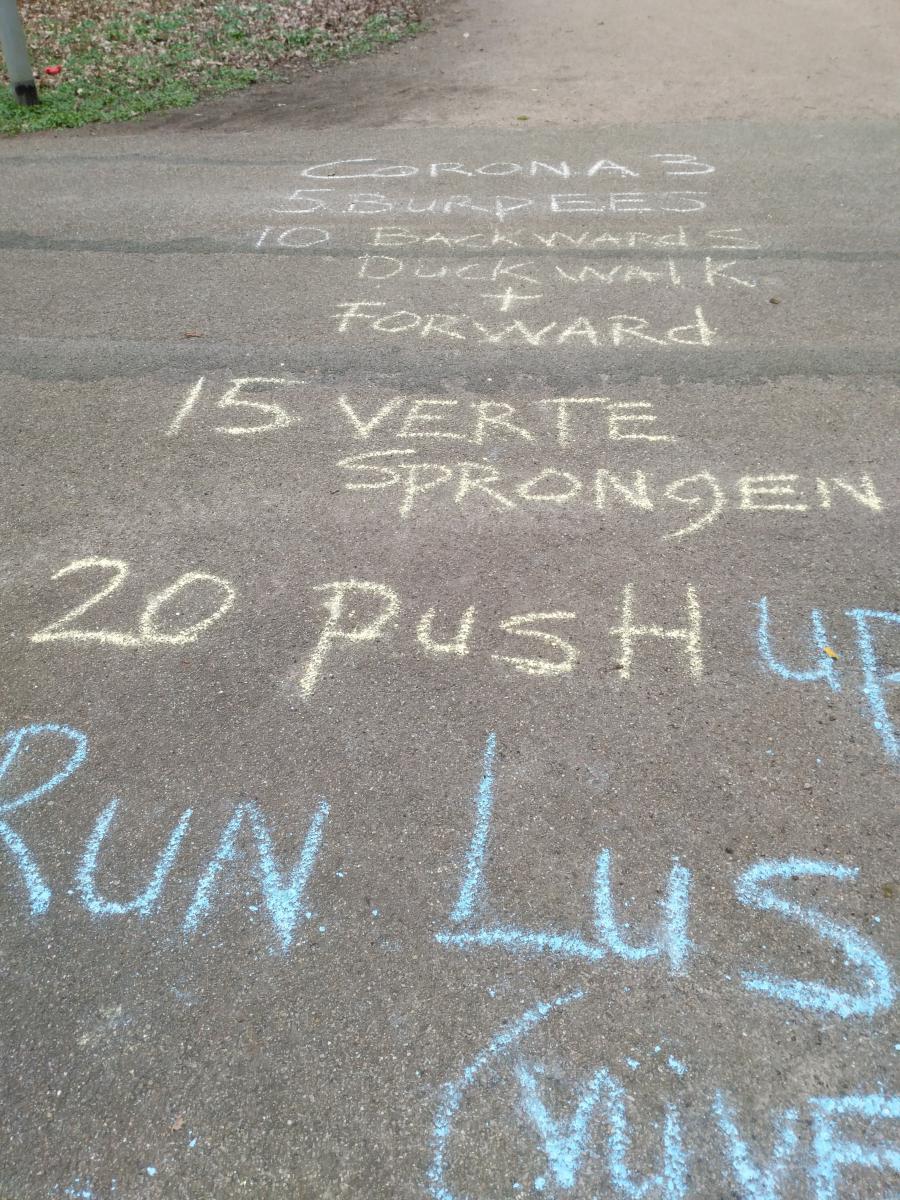 CORONA 3
5 BURPEES
10 BACKWARDS
DUCK WALK
+
FORWARD
15 VERTE
SPRONGEN
20 PUSH UP
RUN LUS